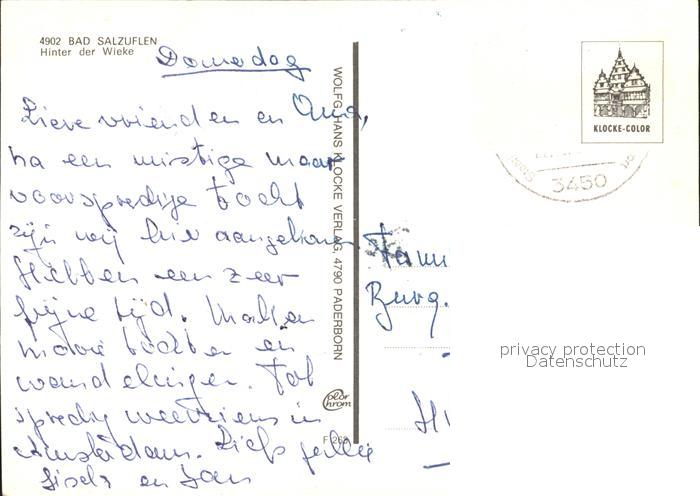 4902 BAD SALZUFLEN
Hinter der Wieke
Donnedag
Lieve vrienden en Oma,
na een mistige maar
voorspoedige tocht
zijn wij hier aangekomen
Hebben een zeer
fijne tijd. Maken
mooie tochten en
wandelingen. Tot
spoedig weerziens in
Amsterdam. Liefs jullie
en Jan
WOLFG. HANS KLOCKE VERLAG, 4790 PADERBORN
color
chrom
F 268
KLOCKE-COLOR
3450
Fam
Burg.
privacy protection
Datenschutz